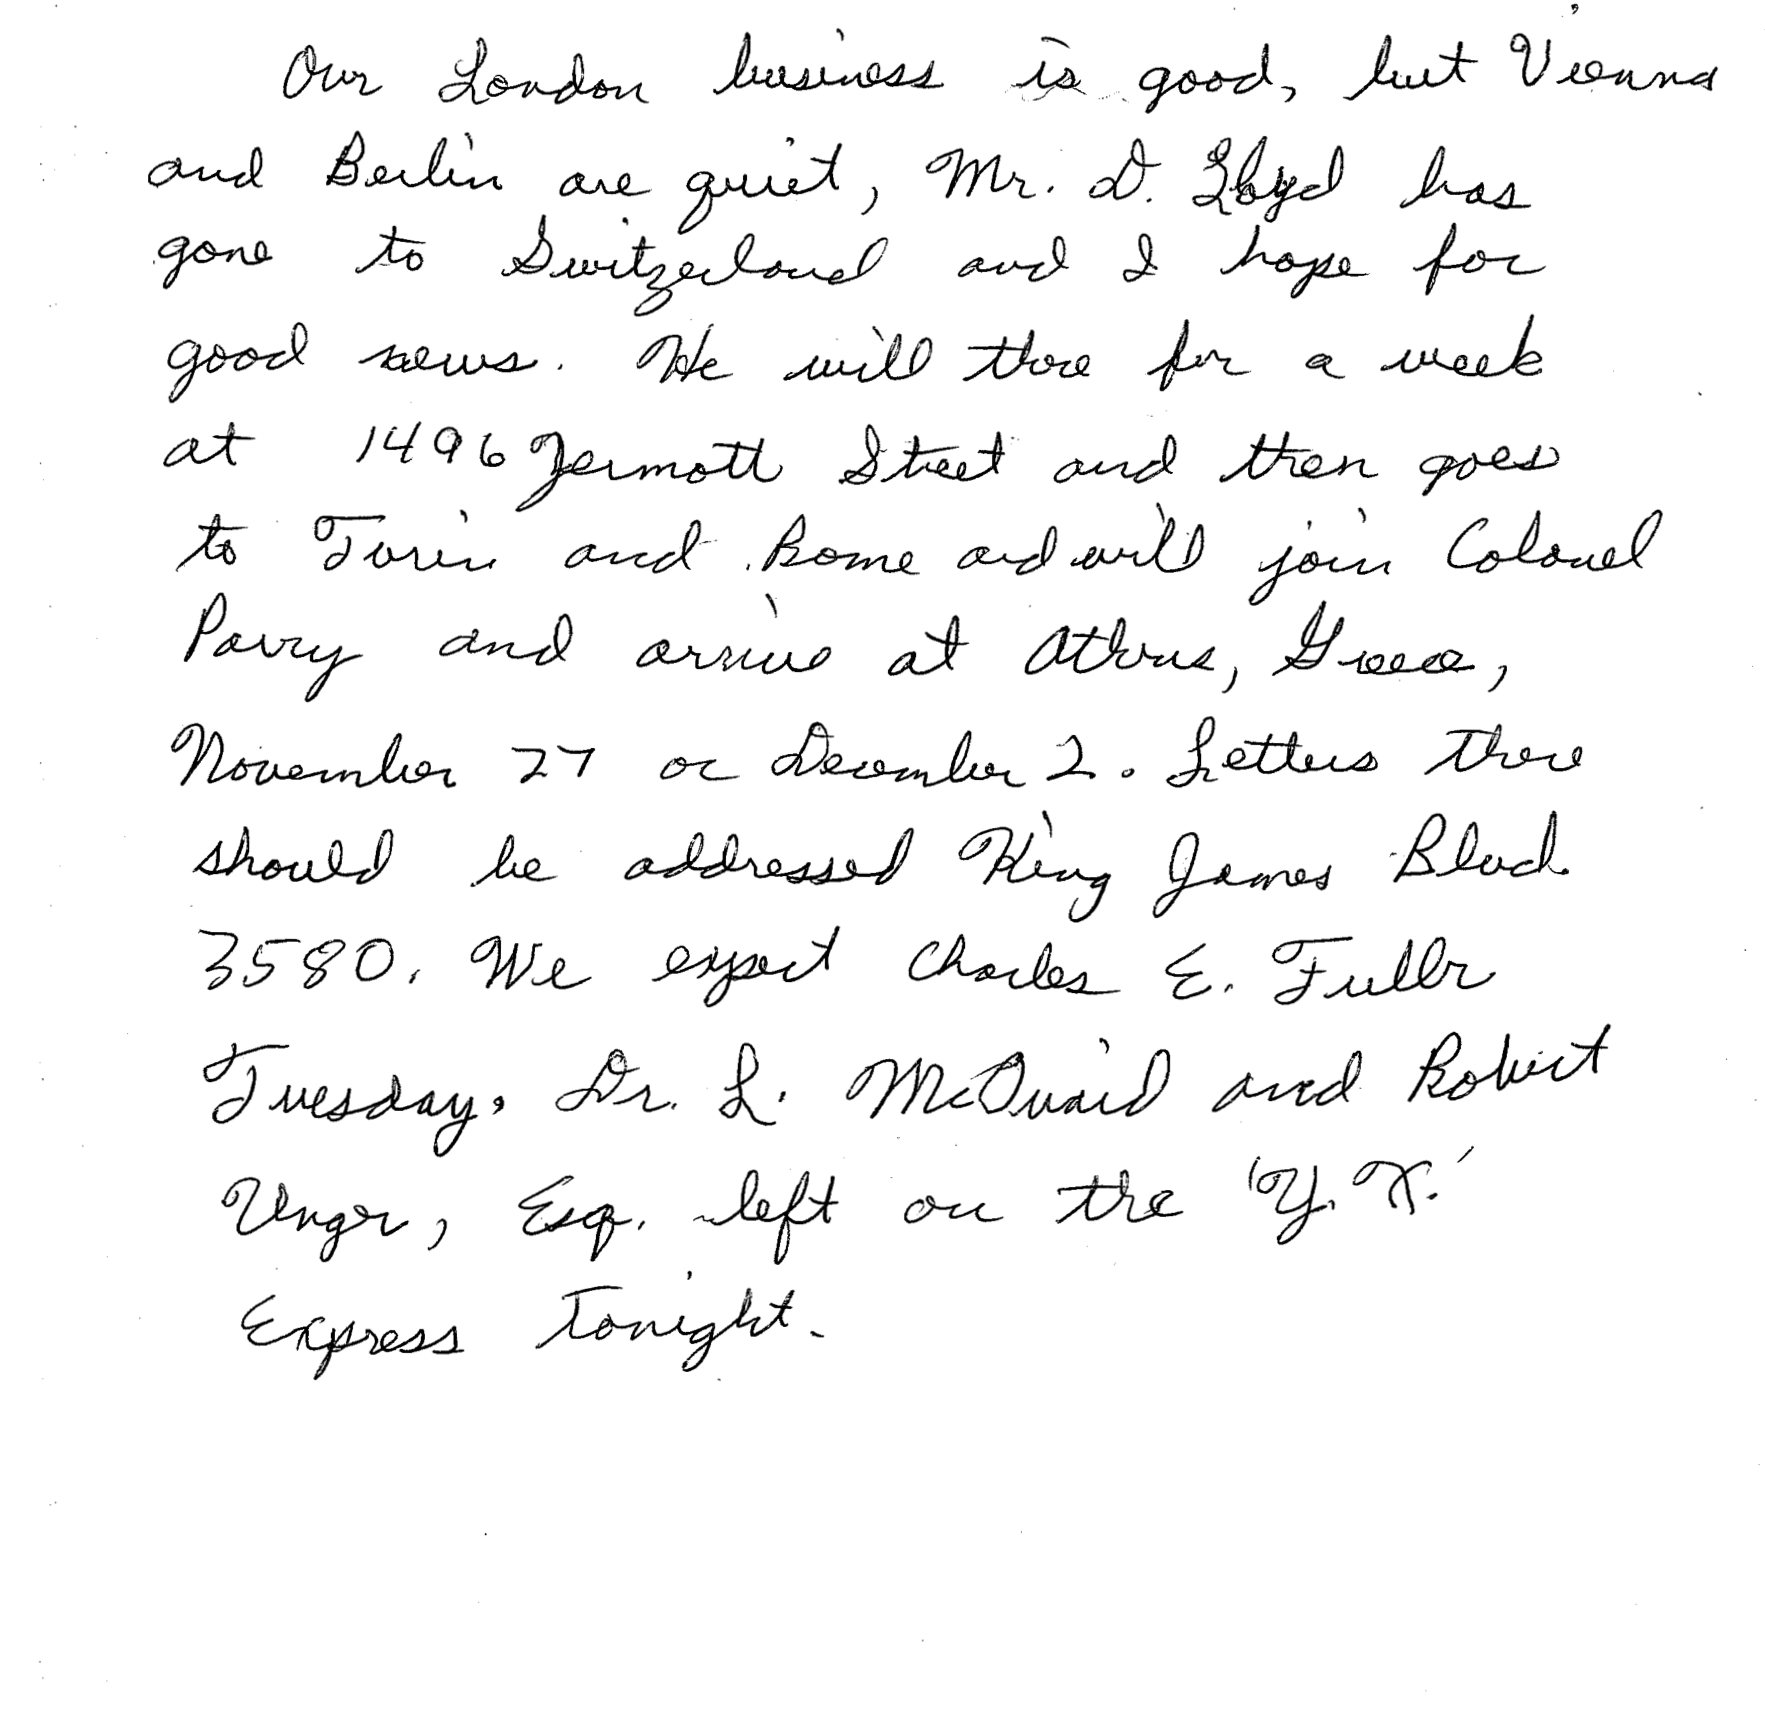 Our London business is good, but Vienna
and Berlin are quiet, Mr. D. Lloyd has
gone to Switzerland and I hope for
good news. He will there for a week
at 1496 Zermott Street and then goes
to Turin and Rome and will join Colonel
Parry and arrive at Athens, Greece,
November 27 or December 2. Letters there
should be addressed King James Blvd.
3580. We expect Charles E. Fuller
Tuesday. Dr. L. McQuaid and Robert
Unger, Esq. left on the 'Y. X.'
Express tonight.